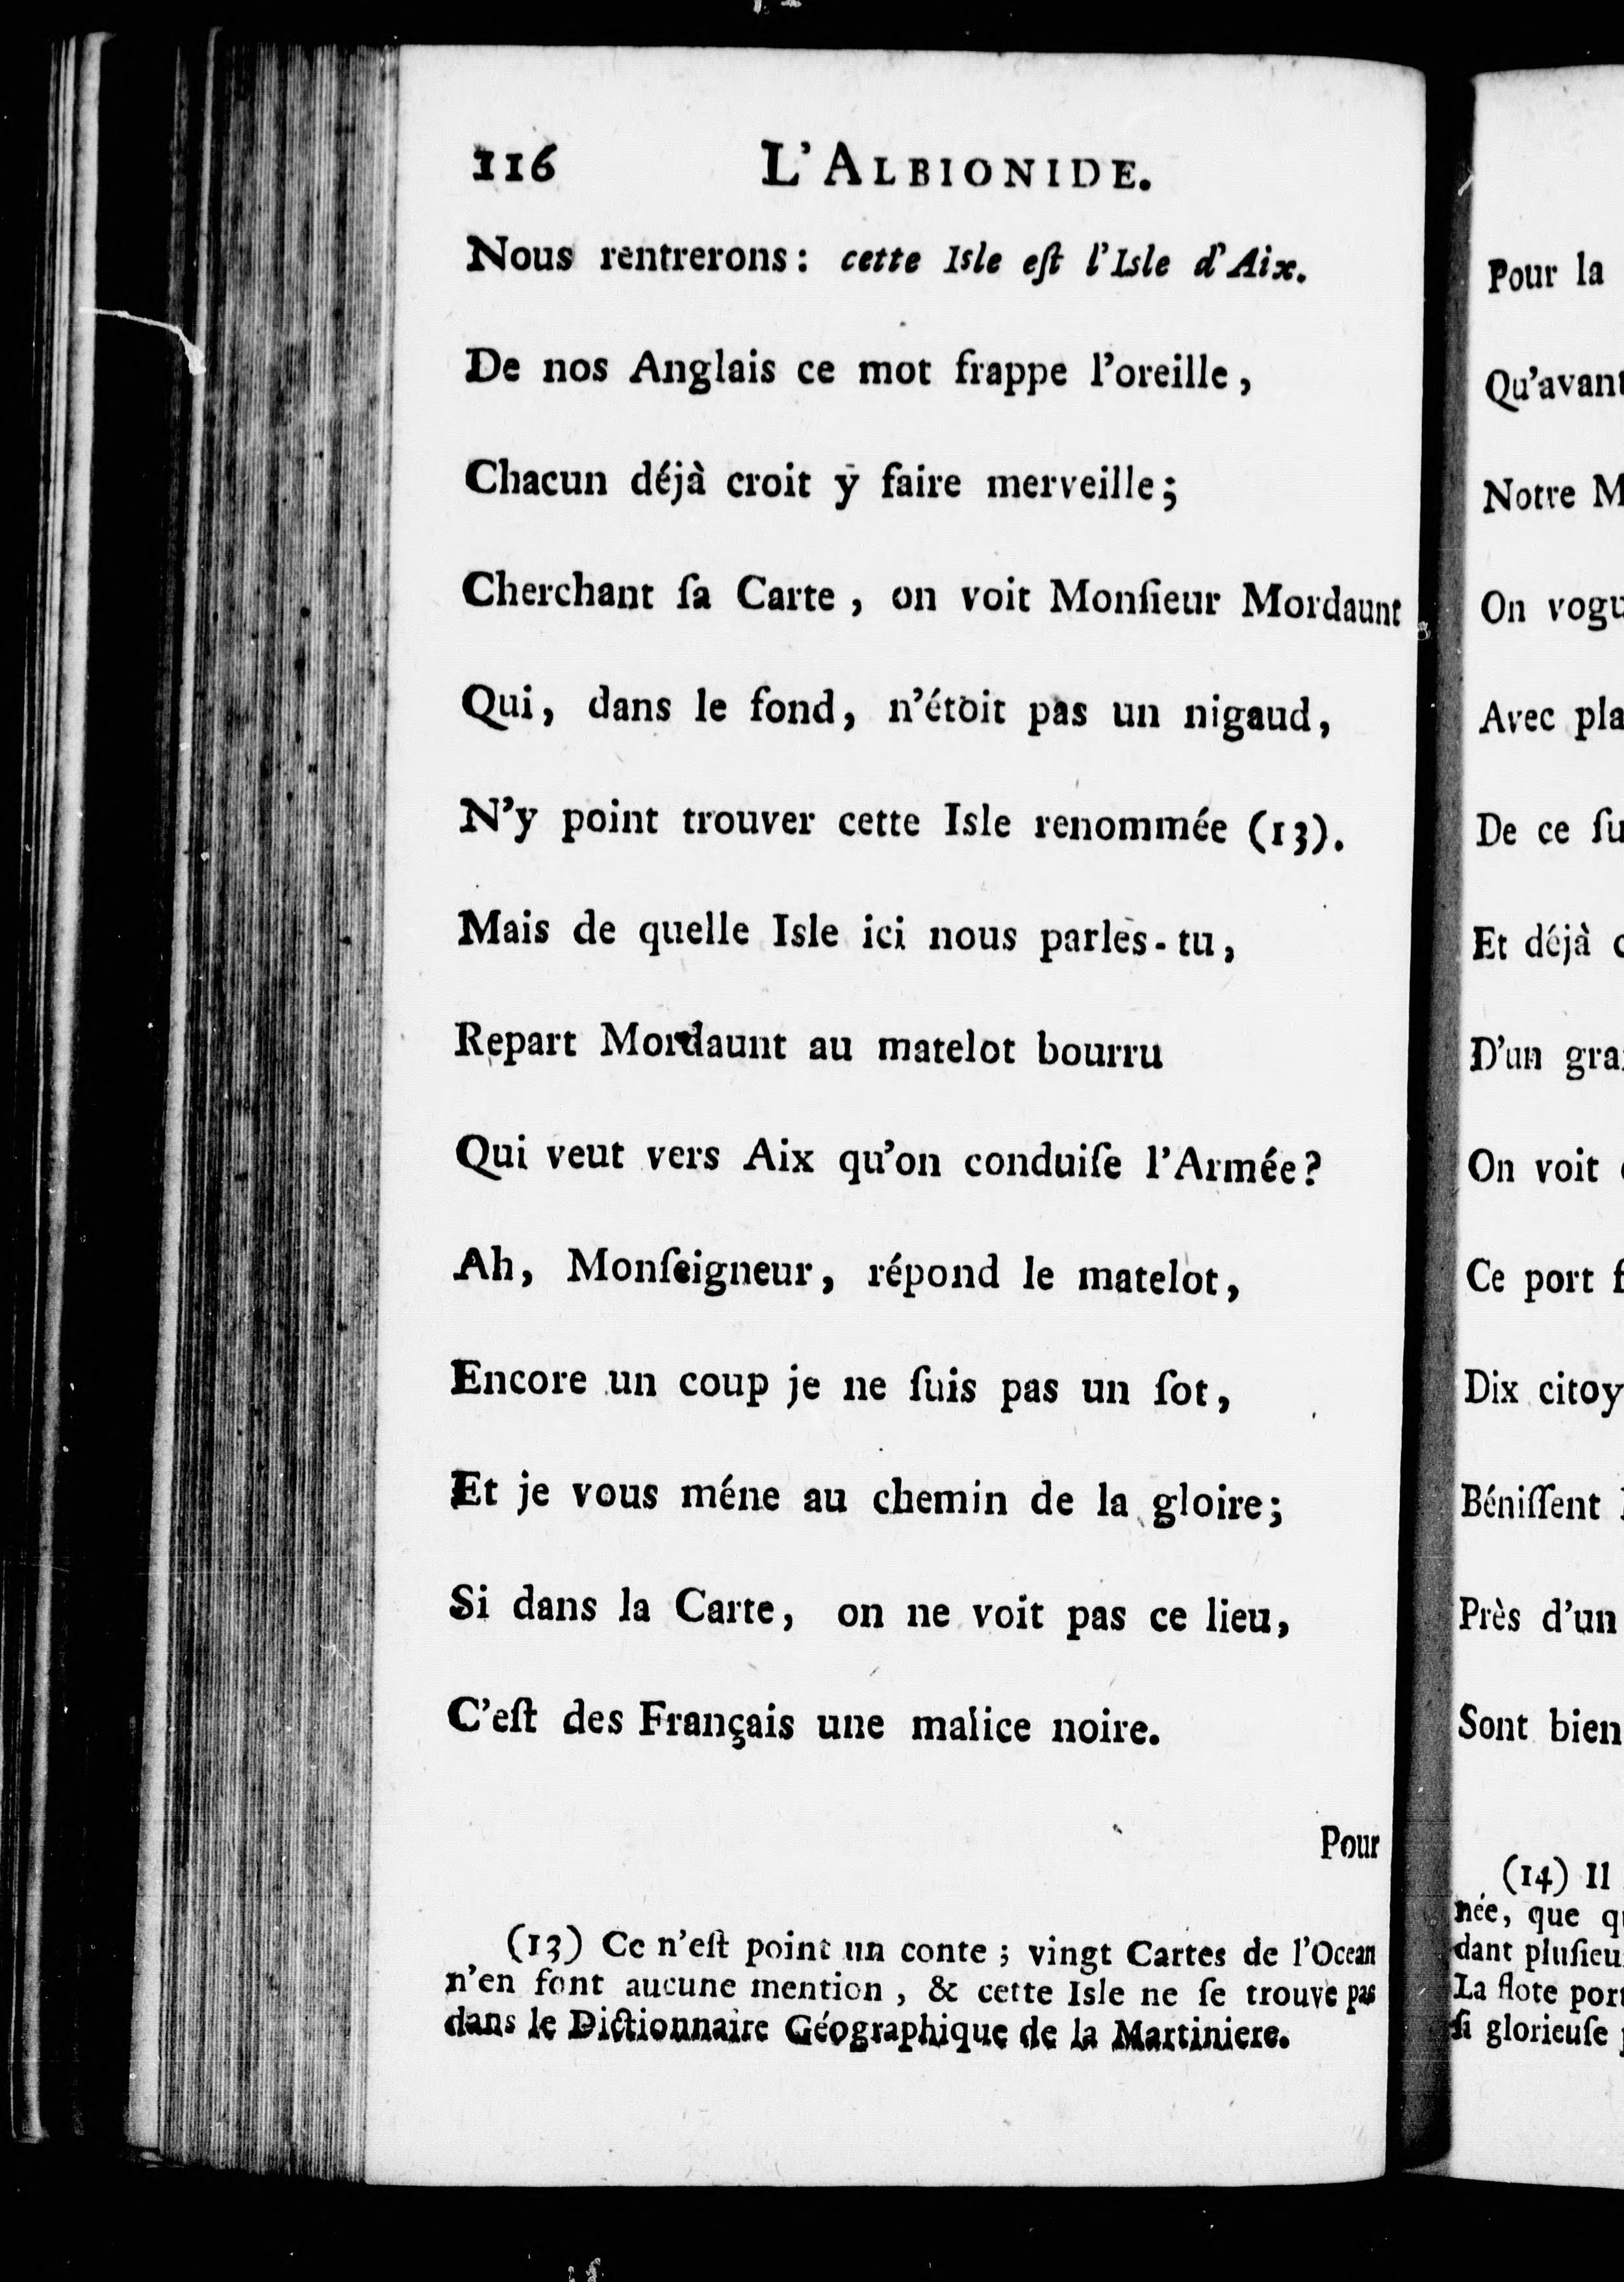 116 L'ALBIONIDE.
Nous rentrerons: cette Isle eſt l'Isle d'Aix.
De nos Anglais ce mot frappe l'oreille,
Chacun déjà croit y faire merveille;
Cherchant ſa Carte, on voit Monſieur Mordaunt
Qui, dans le fond, n'étoit pas un nigaud,
N'y point trouver cette Isle renommée (13).
Mais de quelle Isle ici nous parles-tu,
Repart Mordaunt au matelot bourru
Qui veut vers Aix qu'on conduiſe l'Armée?
Ah, Monſeigneur, répond le matelot,
Encore un coup je ne ſuis pas un ſot,
Et je vous méne au chemin de la gloire;
Si dans la Carte, on ne voit pas ce lieu,
C'eſt des Français une malice noire.
Pour
(13) Ce n'eſt point un conte; vingt Cartes de l'Ocean
n'en font aucune mention, & cette Isle ne ſe trouve pas
dans le Dictionnaire Géographique de la Martiniere.
Pour la
Qu'avant
Notre
On
Avec
De ce
Et déjà
D'un
On voit
Ce port
Dix
Béniſſent
Près d'un
Sont bien
(14) Il
née, que
dant
La flote
ſi glorieuſe